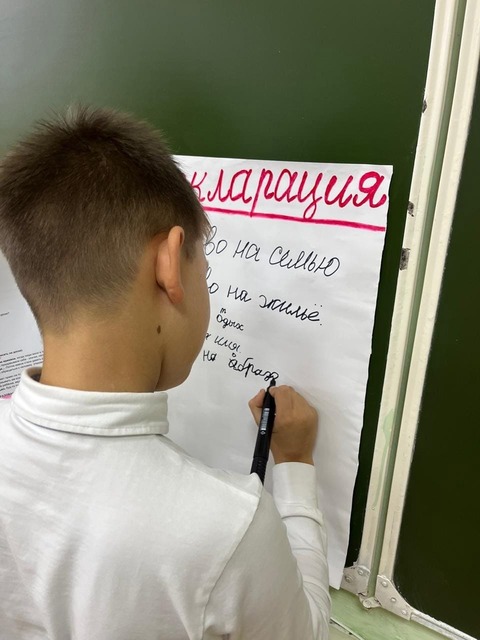 кларация
во на семью
во на жильё.
одых
имя.
на образо